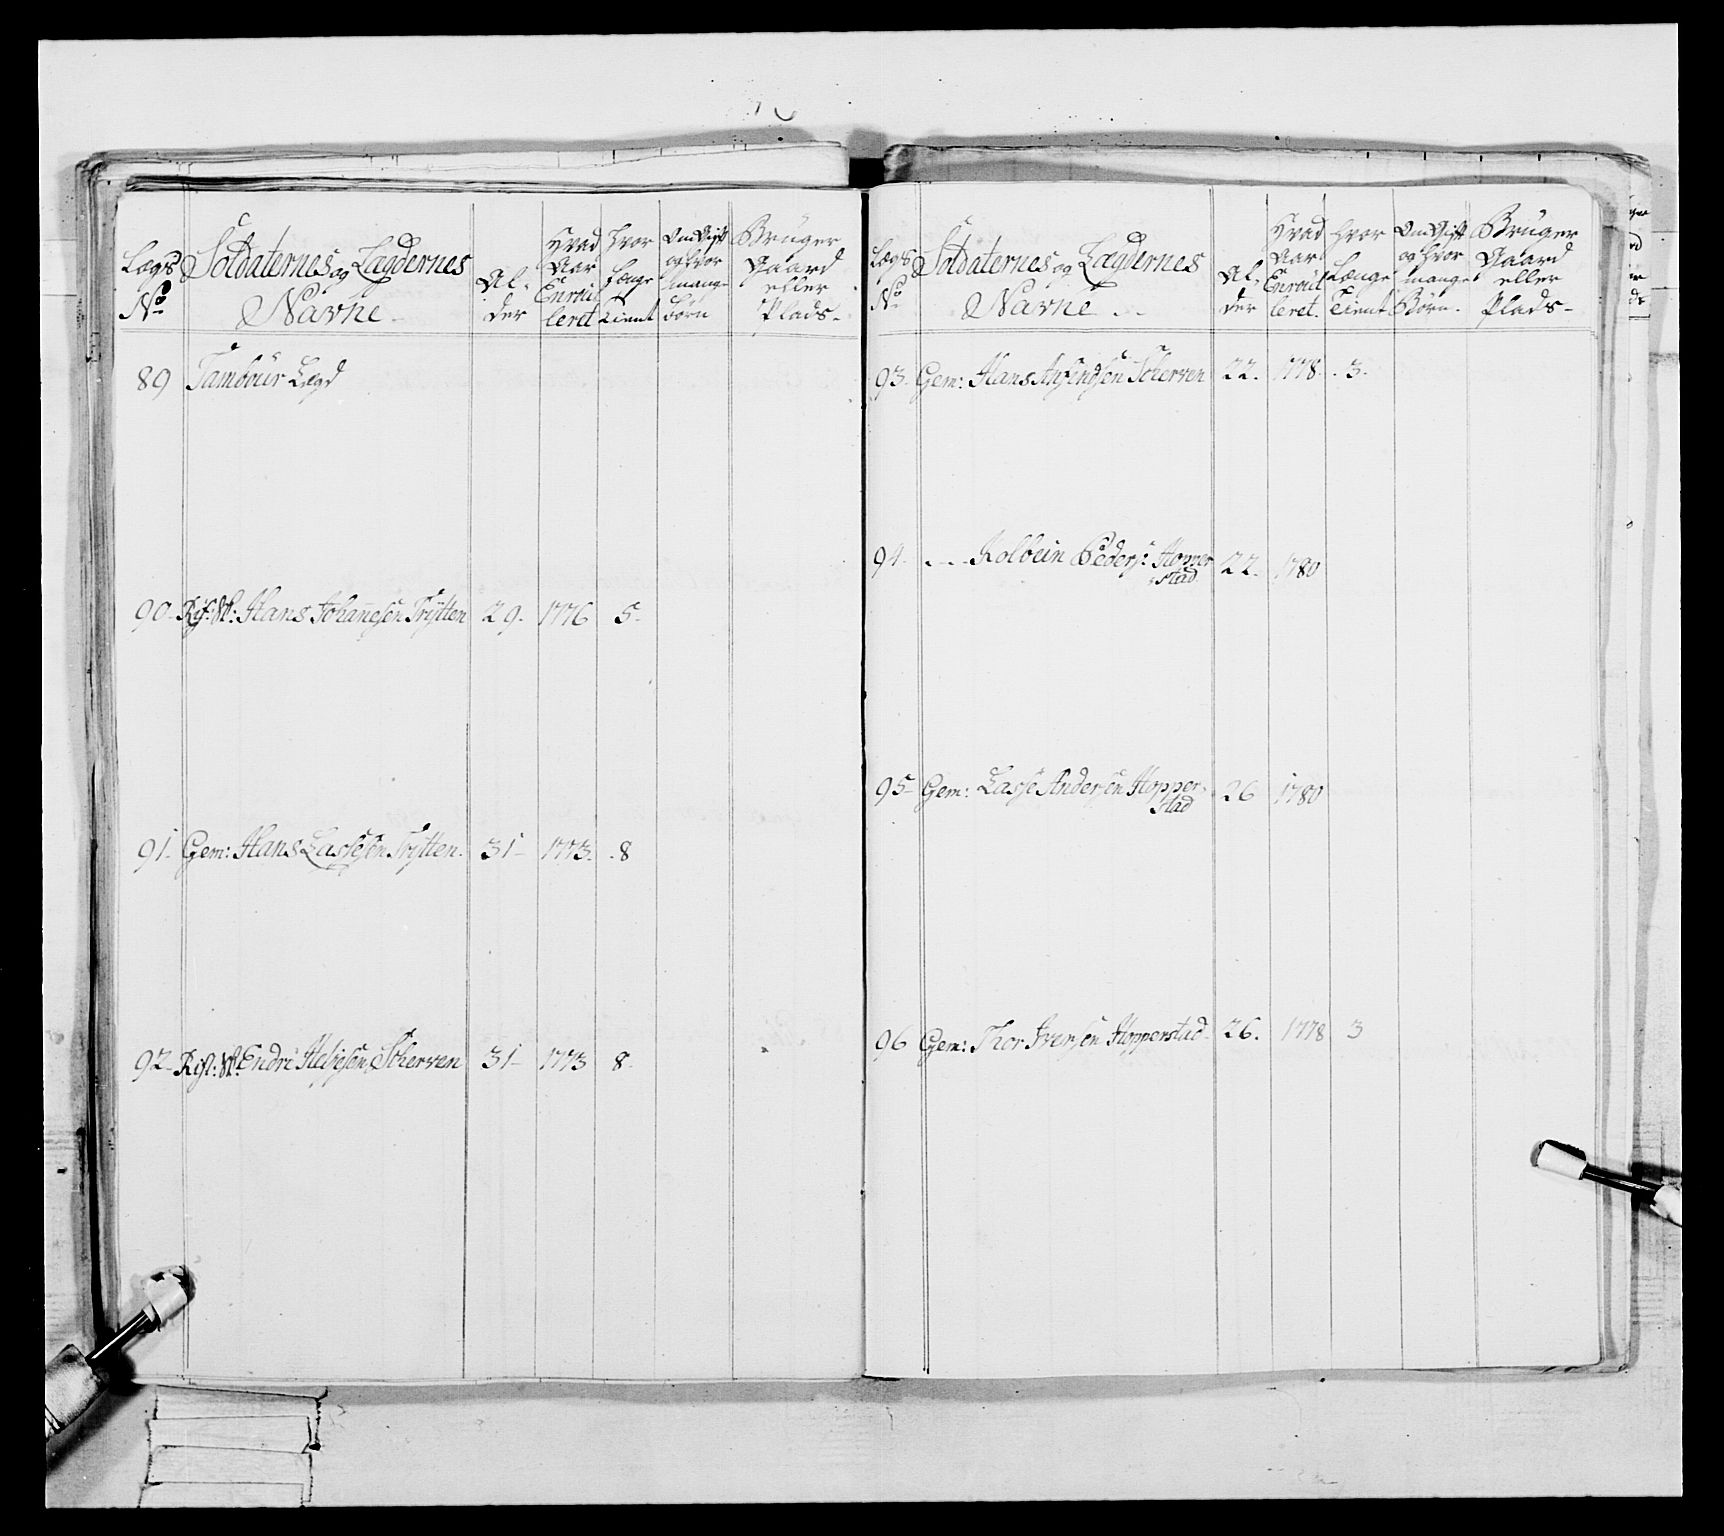 Lægs No
Soldaternes og Lægdernes Navne
Alder
Hvad Aar Enroulleret
Hvor længe Tient
Om Gift og hvor mange börn
Bruger Gaard eller Plads
89 Tambour Lægd
90 Hans Johannesen Trÿtten 29. 1776 5.
91. Gem: Hans Lassesen Trÿtten. 31 1773. 8
92 Endri Helgesen Scherven 31 1773 8
Lægs No
Soldaternes og Lægdernes Navne
Alder
Hvad Aar Enroulleret.
Hvor Længe Tient
Om Gift og hvor mange Börn.
Bruger Gaard eller Plads
93. Gem: Hans Anfindsen Scherven 22. 1778. 3.
94. - - - Kolbein Peders: Hopper
stad 22. 1780
95 Gem: Lasse Andersen Hopper
stad 26 1780
96 Gem: Thor Iversen Hopperstad 26. 1778 3